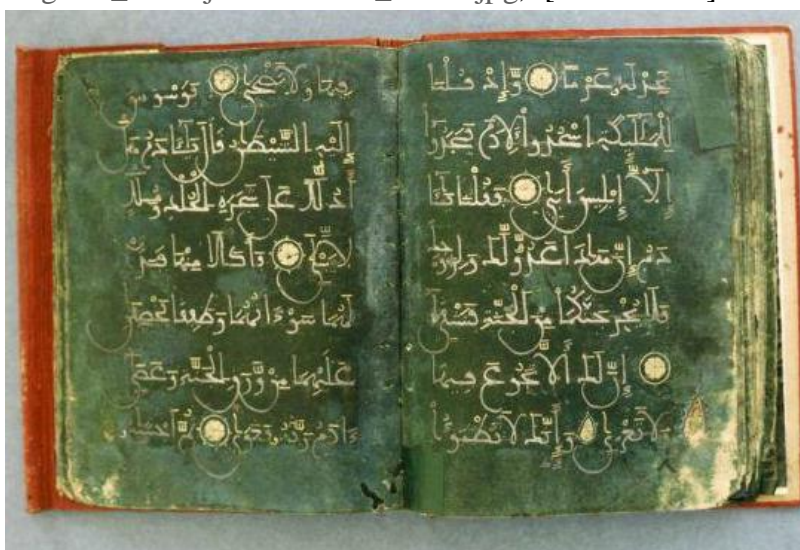 نجد له عزما وإذ قلنا
للملئكة اسجدوا لادم فسجدوا
إلا إبليس أبى فقلنا يا
دم إن هذا عدو لك ولزوجك
فلا يخرجنكما من الجنة فتشقى
إن لك ألا تجوع فيها
ولا تعرى وأنك لا تظمؤا
فيها ولا تضحى فوسوس
إليه الشيطن قال يادم هل
أدلك على شجرة الخلد وملك
لا يبلى فأكلا منها فبدت
لهما سوءاتهما وطفقا يخصفن
عليهما من ورق الجنة وعصى
ءادم ربه فغوى ثم اجتبه